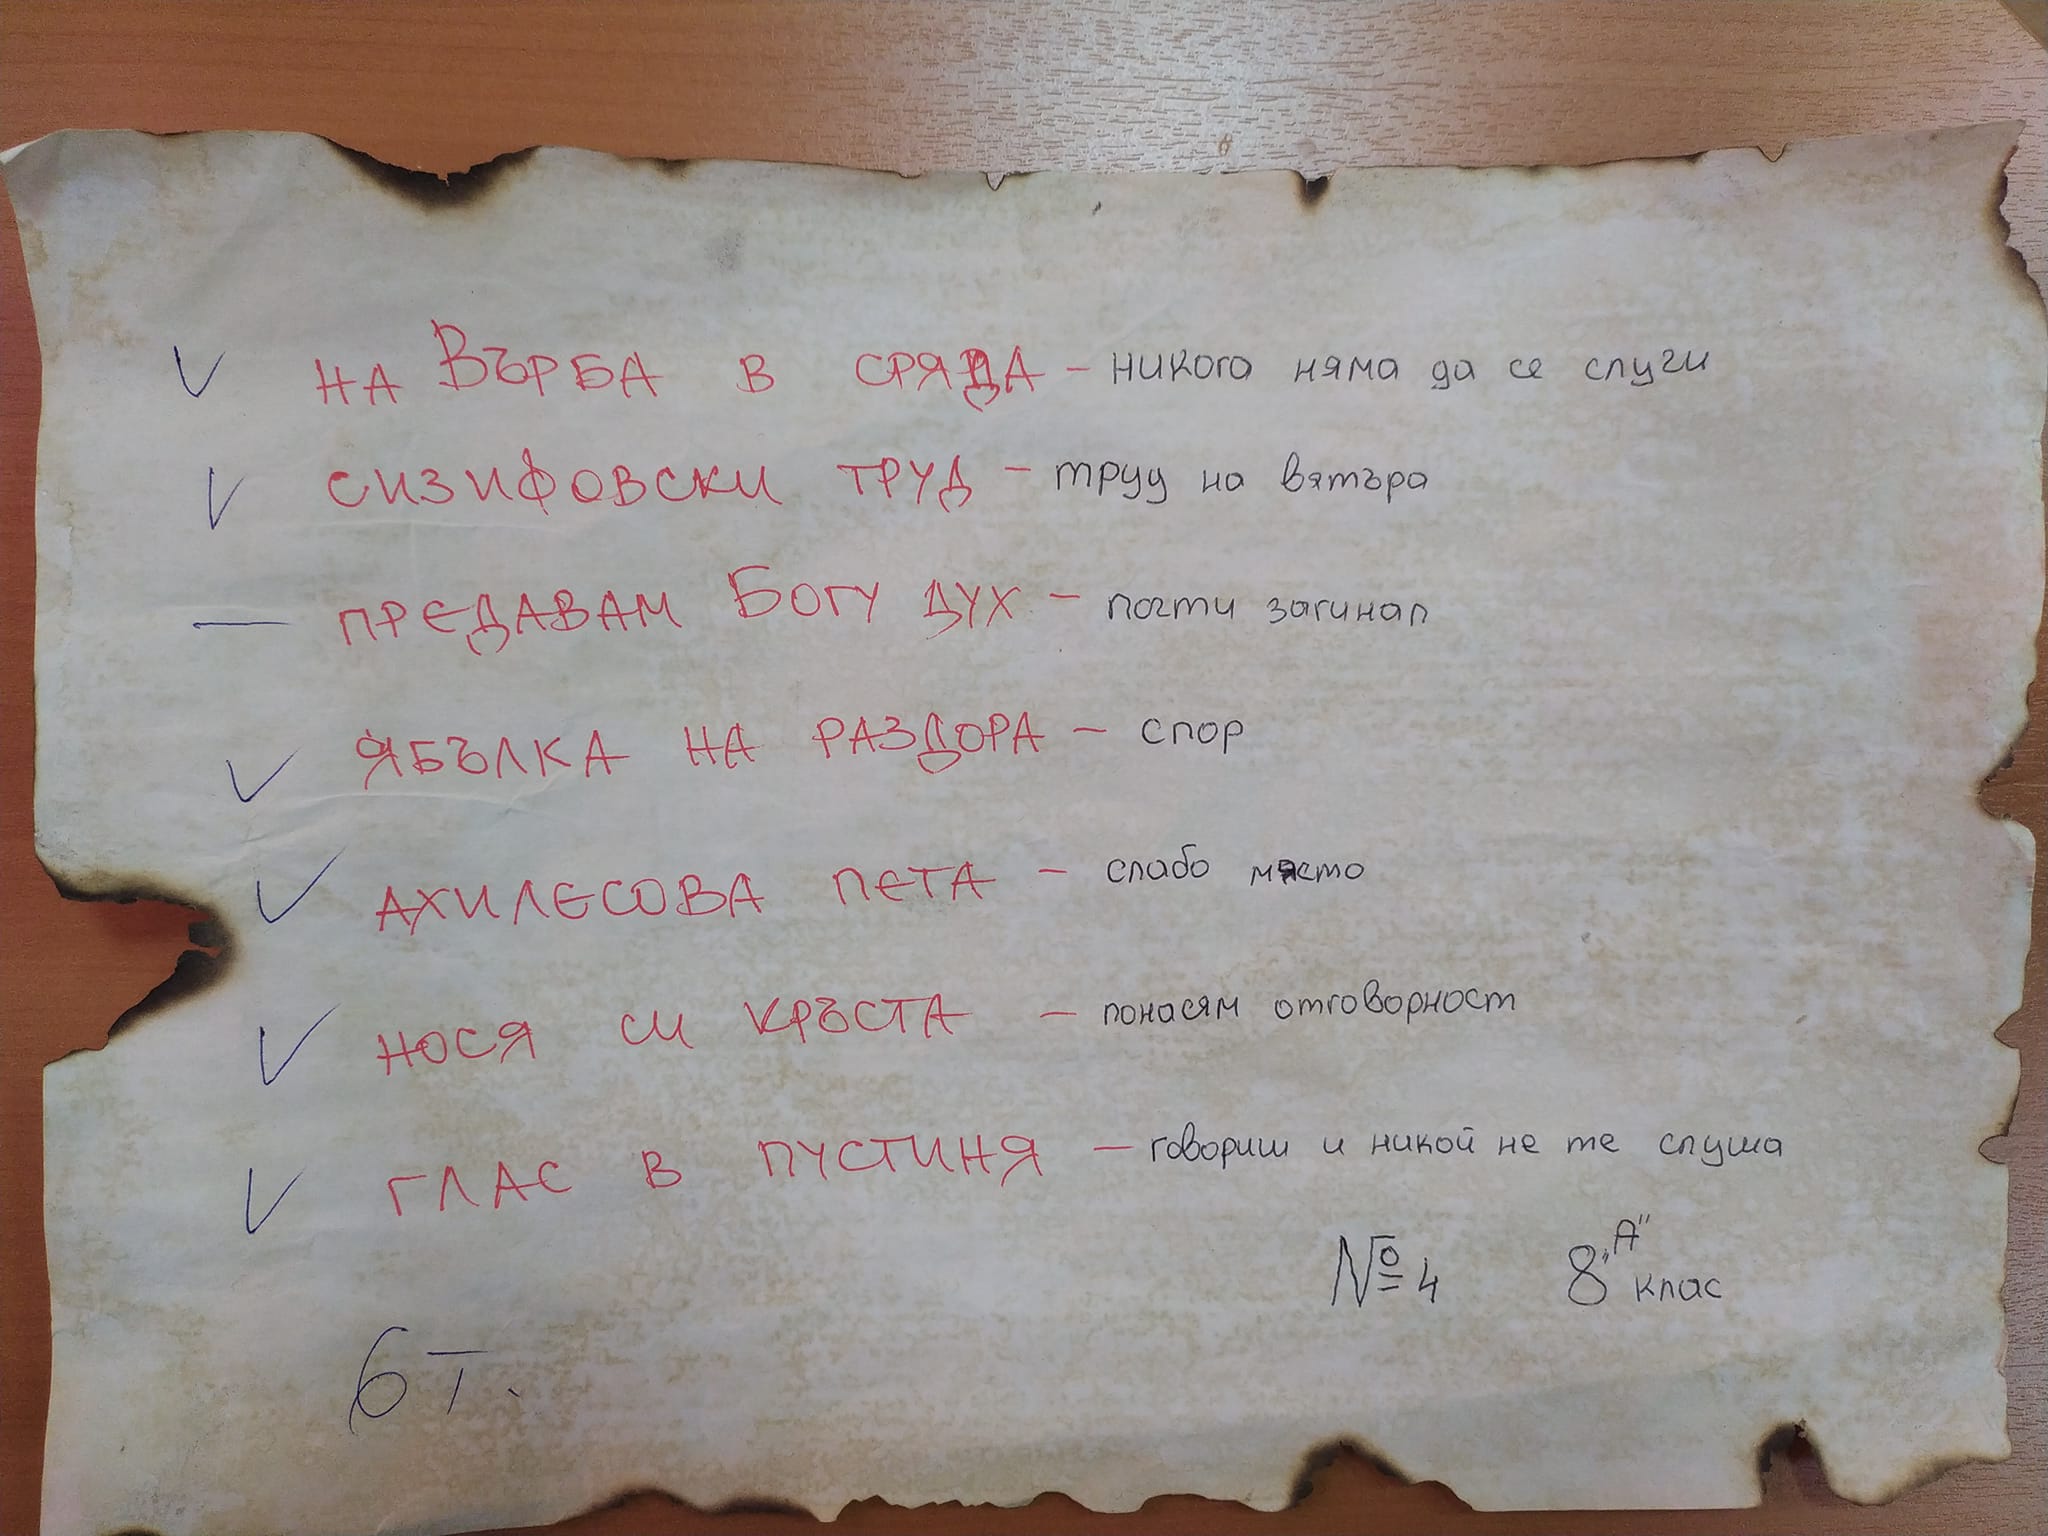 НА ВЪРБА В СРЯДА – никога няма да се случи
СИЗИФОВСКИ ТРУД – труд на вятъра
ПРЕДАВАМ БОГУ ДУХ – почти загинал
ЯБЪЛКА НА РАЗДОРА – спор
АХИЛЕСОВА ПЕТА – слабо място
НОСЯ СИ КРЪСТА – понасям отговорност
ГЛАС В ПУСТИНЯ – говориш и никой не те слуша
№4 8 „А" клас
6 т.